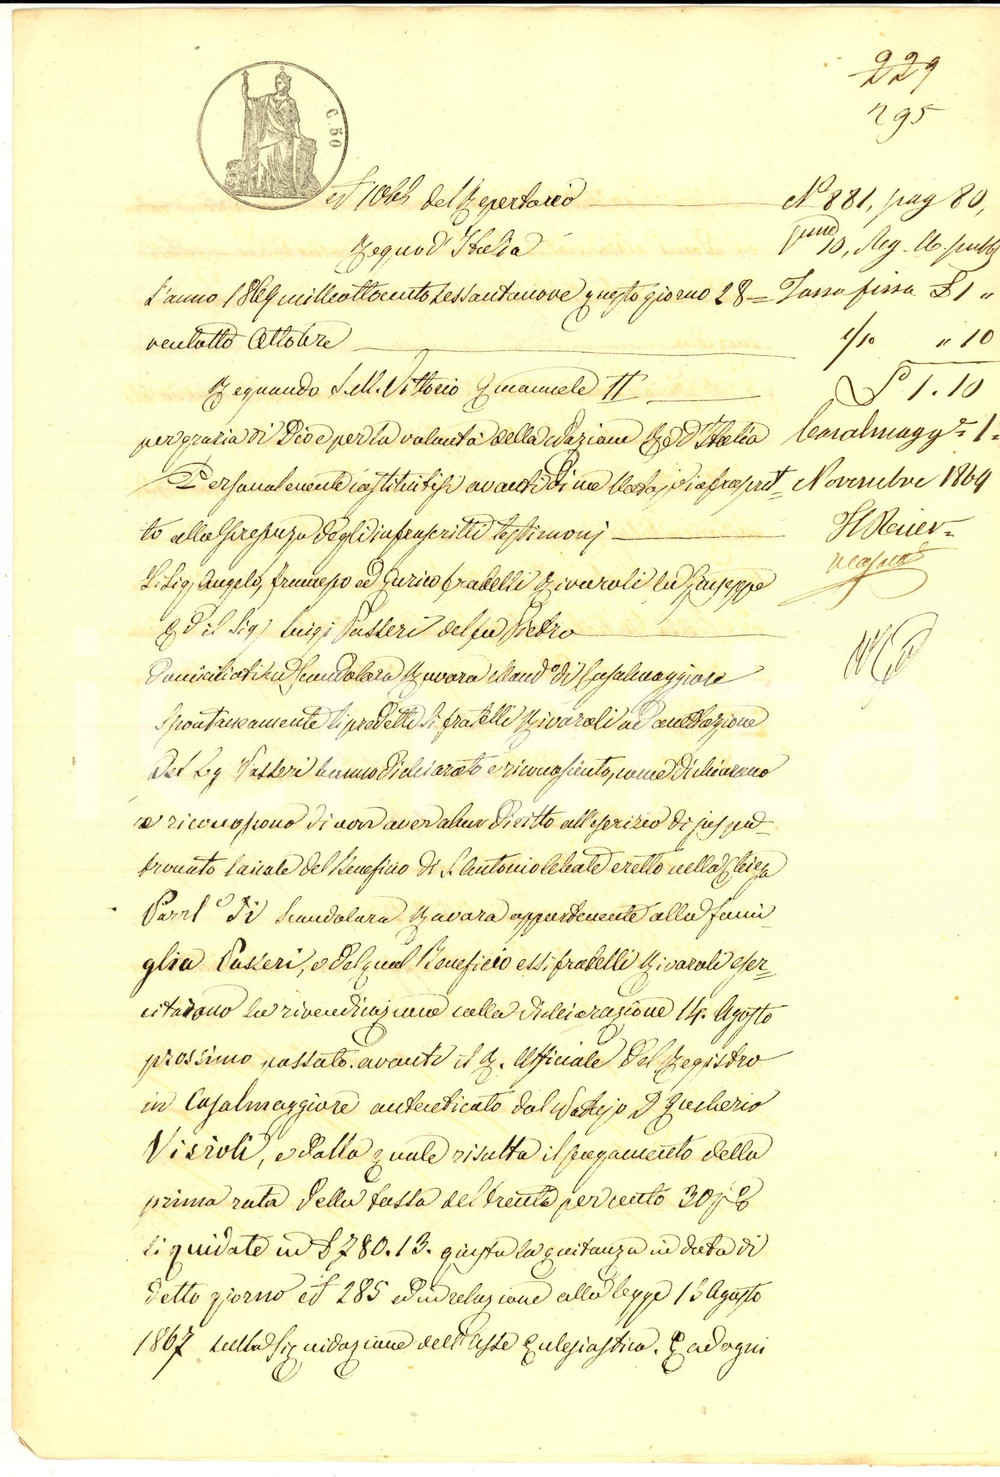 229
295
C. 50
del Repertorio
N° 881, pag 80,
Regno d'Italia
10, Reg. A. pubb
L'anno 1869 milleottocentosessantanove questo giorno 28 =
Tassa fissa £ 1 "
ventotto Ottobre
1/10 " 10
£ 1. 10
Regnando S. M. Vittorio Emanuele II
per grazia di Dio e per la volontà della Nazione Re d'Italia
Casalmagg.re 1=
Personalmente costituitisi avanti di me Notajo infrascrit=
Novembre 1869
to alla presenza degli infrascritti testimonj
Il Ricev=
Li Sig.i Angelo, Francesco ed Enrico fratelli Rivaroli fu Giuseppe
Ed il Sig. Luigi Passeri del fu Pietro
domiciliati in Scandolara Ravara Mand.o di Casalmaggiore
Spontaneamente li predetti Si. fratelli Rivaroli ad
del Sig Passeri hanno dichiarato e riconosciuto, come dichiarano
e riconoscono di non aver alcun diritto all'esercizio di jus pat=
tronato laicale del Beneficio di S. Antonio Abate eretto nella Chiesa
Parr.le di Scandolara Ravara appartenente alla fami=
glia Passeri, e del qual Beneficio essi fratelli Rivaroli eser=
citarono la rivendicazione colla dichiarazione 14. Agosto
prossimo passato avanti il R. Ufficiale del Registro
in Casalmaggiore autenticato dal Notajo D.
Visioli, e dalla quale risulta il pagamento della
prima rata della tassa del trenta per cento 30 p %
liquidate in £ 780. 13. giusta la quitanza in data di
detto giorno N° 285 ed in relazione alla legge 15 Agosto
1867 sulla liquidazione dell'Asse Eclesiastico. E ad ogni